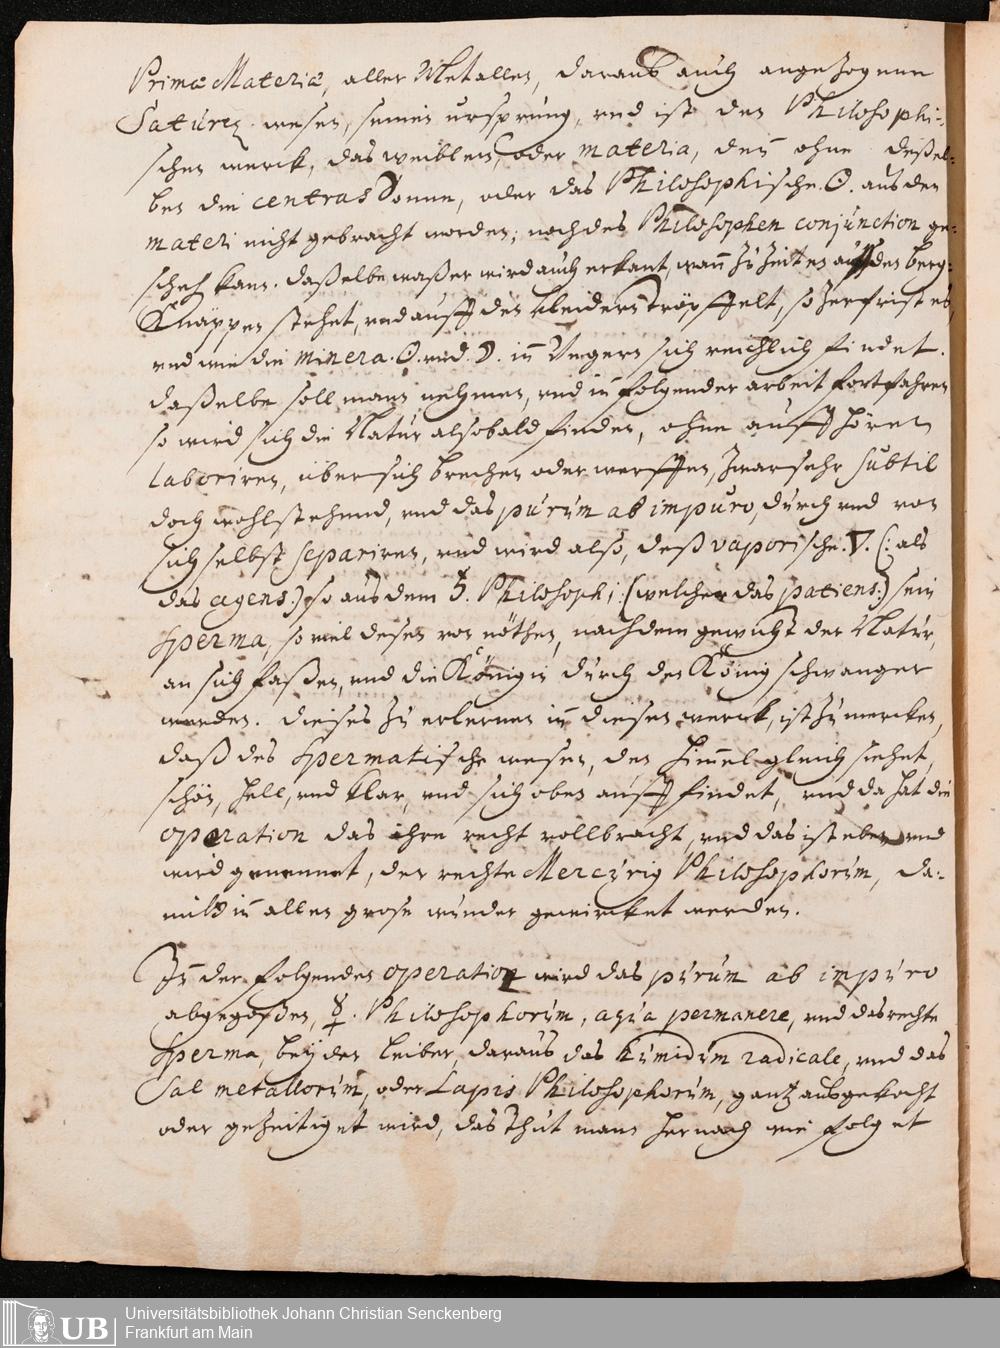 Primæ Materiæ, aller Metallen, daraus auch angezogene
Saturey wesen, seinen ursprung, vnd ist des Philosophi-,
schen werck, das weiblein, oder materia, den ohne deßel-
ben die centras Sonne, oder das Philosophische. ☉. aus der
materi nicht gebracht werden, noch des Philosophen conjunction ge-
scheh kann. daßelbe waßer wird auch erkant, wann zu zeiten auff den berg-
Knappen stehet, vnd auff den kleidern tröpffelt, so zerfrist es,
vnd wie die minera. ☉. vnd. ☽. in Ungern sich reichlich findet.
daßelbe soll mann nehmen, vnd in folgender arbeit fortfahren
so wird sich die Natur alsobald finden, ohne auffhören
laboriren, über sich brechen oder werffen, zwar sehr subtil
doch wohlstehend, vnd das purum ab impuro, durch vnd von
sich selbst separiren, vnd wird also, deß vaporische. ▽. (: als
das agens:) so aus dem ♄. Philosophi: (welcher das patiens:) sein
sperma, so viel deßen von nöthen, nach dem gewicht der Natur,
an sich faßen, vnd die Königin durch den König schwanger
werden. dieses zu erlernen in diesen werck, ist zu mercken,
daß des spermatische wesen, den himmel gleich siehet,
schön, hell, vnd klar, vnd sich oben auff findet, vnd da hat die
operation das ihre recht vollbracht, vnd das ist eben vnd
wird genennet, der rechte Mercurig Philosophorum, da-
mit in allen grose wunder gewircket werden.
In der folgenden operation wird das purum ab impuro
abgegoßen, ☿. Philosophorum, aqua permanere, vnd das rechte
sperma, bey den leiber, daraus das humidum radicale, vnd das
Sal metallorum, oder Lapis Philosophorum, gantz ausgekocht
oder gezeitiget wird, das thut mann hernach wie folget
Universitätsbibliothek Johann Christian Senckenberg
Frankfurt am Main
UB